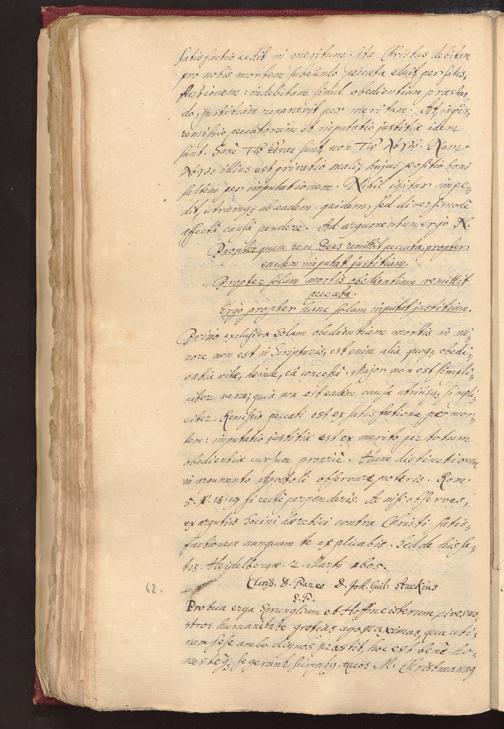 satisfactio cedit in meritum. Ita Christus debitam
pro nobis mortem subeundo peccata eluit per satis-
factionem: indebitam simul obedientiam praestan-
do, justitiam reparavit per meritum. At inquis,
remissio peccatorum et imputatio justitiae idem
sunt. Sane sunt non Nam
illius est privatio mali, hujus positio boni
saltem per imputationem. Nihil igitur impe-
dit, utramque ab eadem quidem, sed diversimode
affecta causa pendere. Ad argumentum ergo
Propter quam rem Deus remittit peccata, propter
eandem imputat justitiam.
Propter solam mortis obedientiam remittit
peccata.
Ergo propter hanc solam imputat justitiam.
Primo exclusiva solam obedientiam mortis in mi-
nore non est in Scripturis, est enim alia quoque obedi-
entia vitae, deinde, ea concessa. Major non est simpli-
citer vera, quia non est eadem causa utriusque simpli-
citer. Remissio peccati est ex satisfactione per mor-
tem: imputatio justitiae est ex merito per totum
obedientiae cursum Hanc distinctionem
in argumento Apostoli observare poteris. Rom.
5. v. 18. 19 si recte perpenderis. Ac nisi observes,
ex argutiis Socini haeretici contra Christi satis-
factionem nunquam te explicabis. Sed de his sa-
tis. Heidelbergae. 2. Martij 1605.
62. Clariss. D. Pareo D. Joh. Guil. Stuckius
S. P.
Probua erga Sprunglium et Hoffmeisterum cives no-
stros humanitate gratias ago maximas, qua uti-
nam sese ambo dignos praestit, hoc est bene ho-
nesteque se gerant quos M. Christmannus